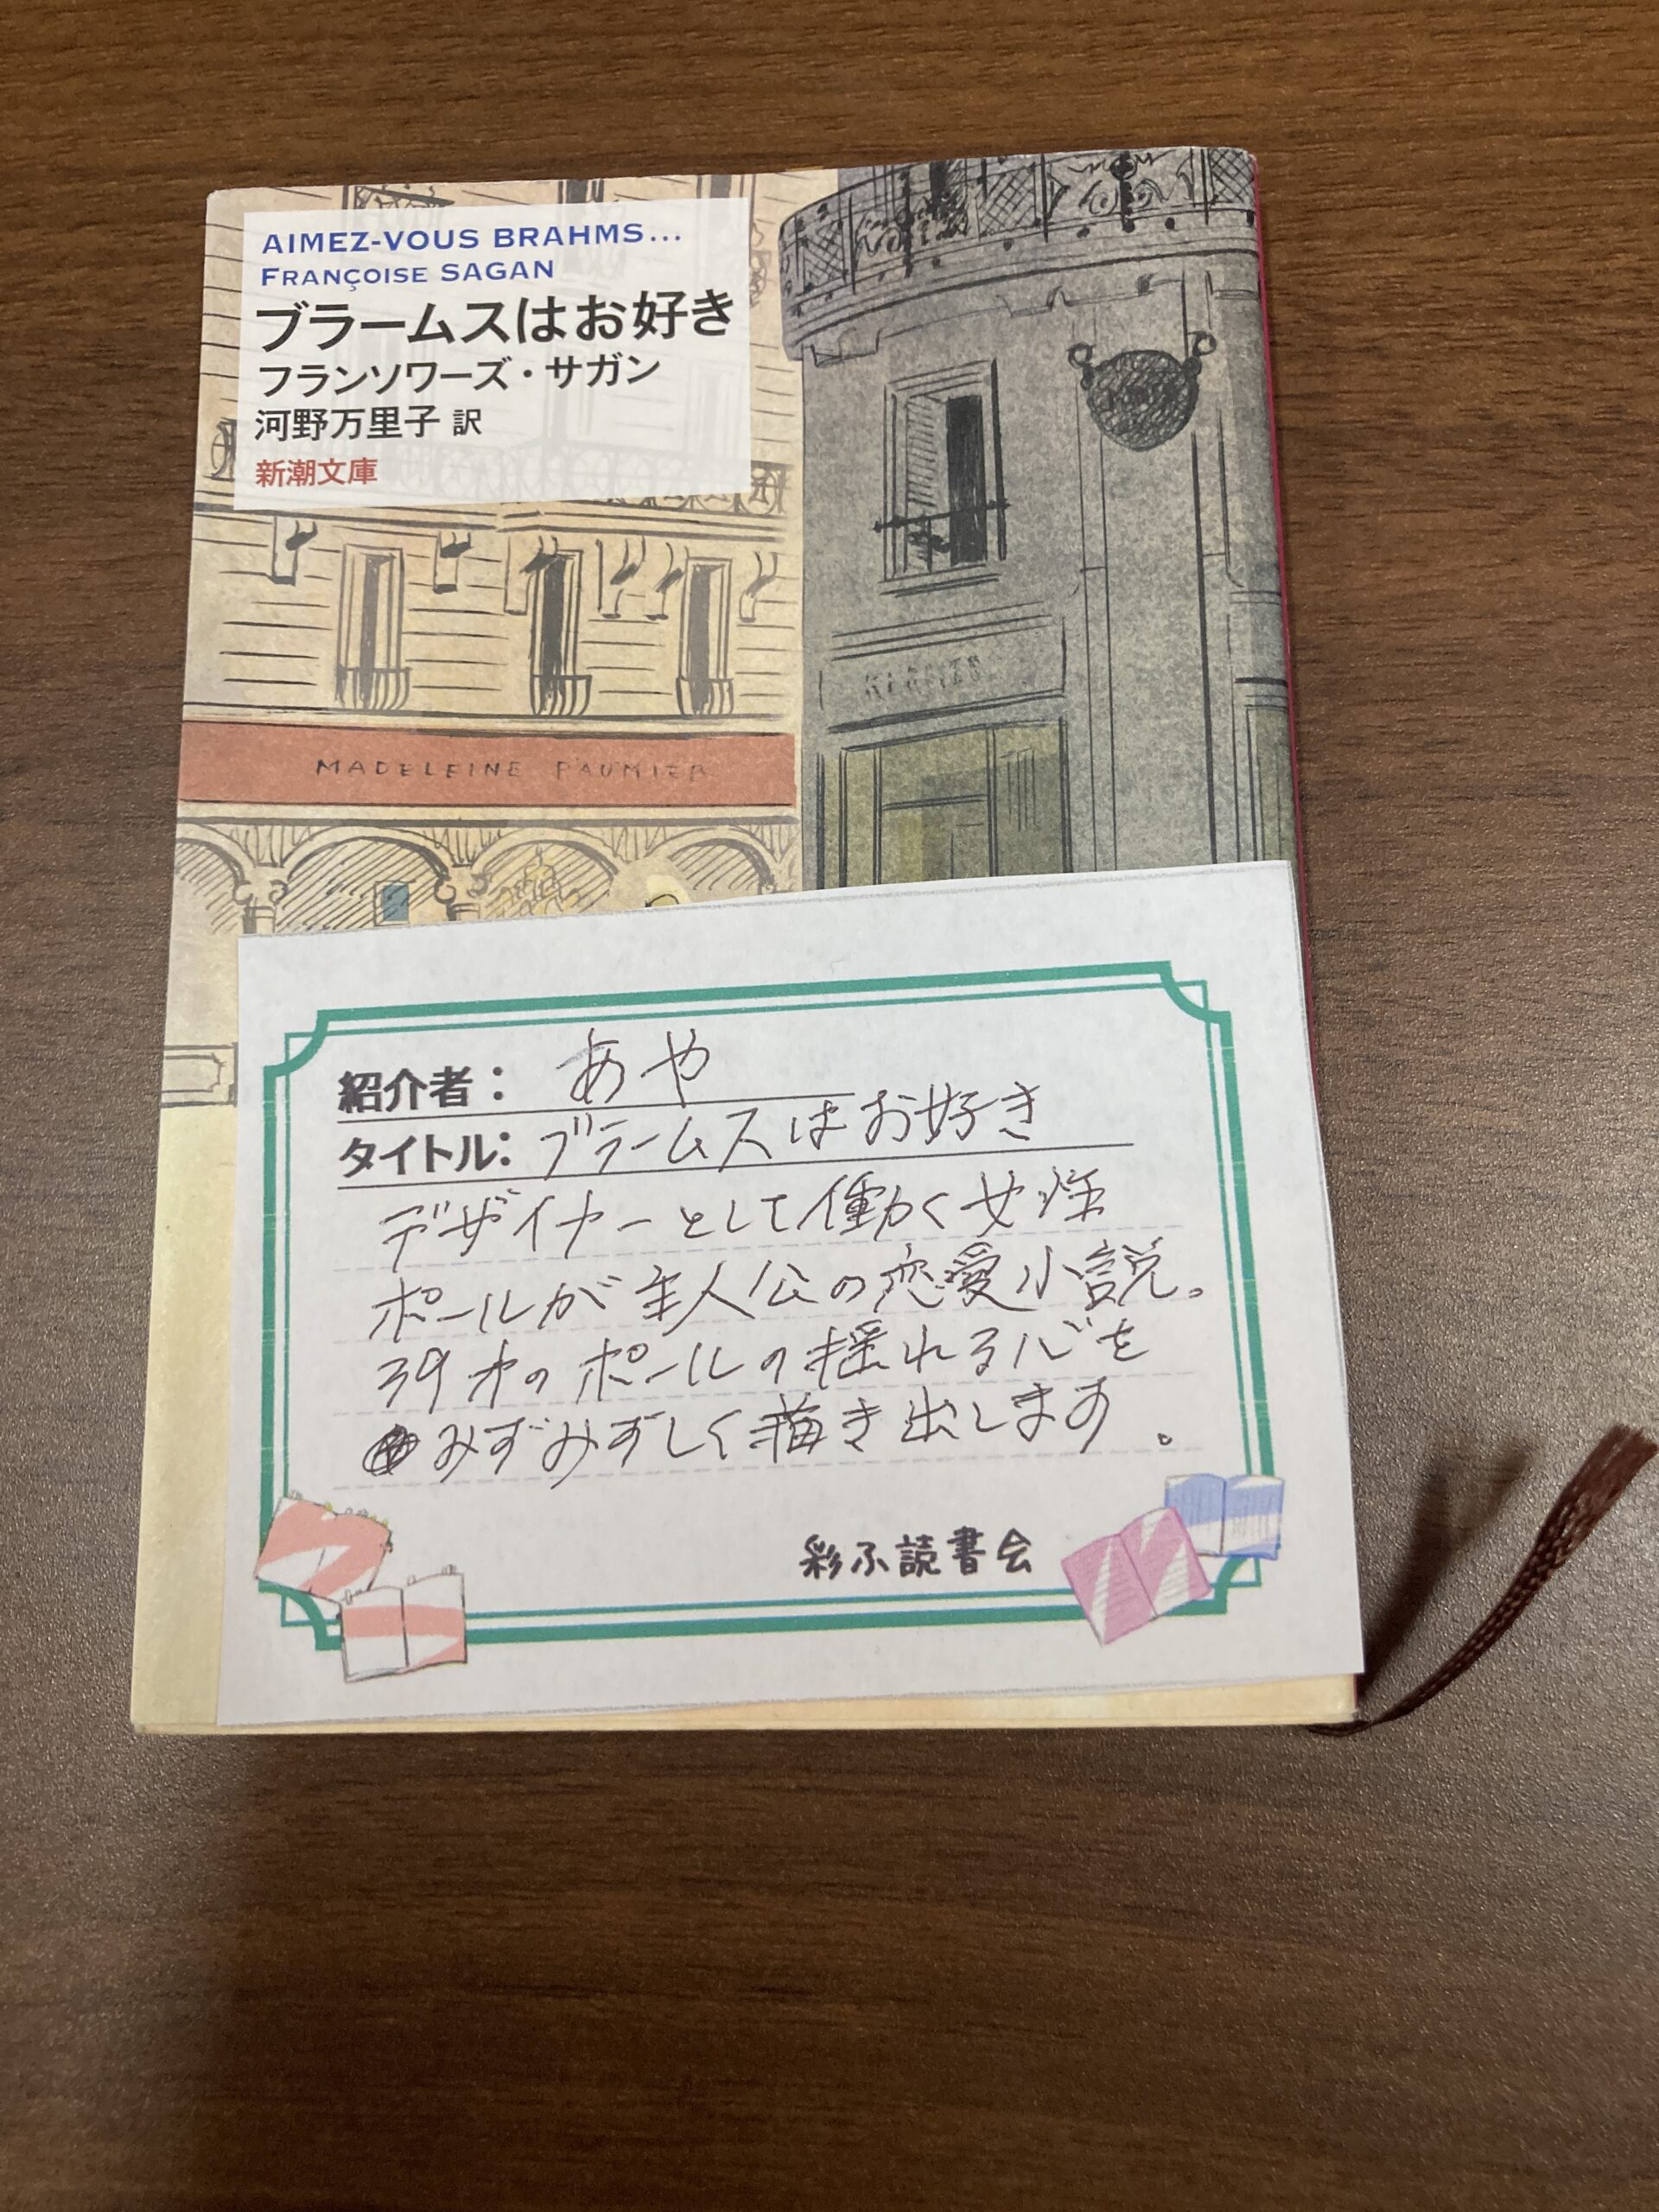 AIMEZ-VOUS BRAHMS...
FRANÇOISE SAGAN
ブラームスはお好き
フランソワーズ・サガン
河野万里子 訳
新潮文庫
MADELEINE PAUMIER
紹介者： あや
タイトル： ブラームスはお好き
デザイナーとして働く女性
ポールが主人公の恋愛小説。
39才のポールの揺れる心を
みずみずしく描き出します。
彩ふ読書会